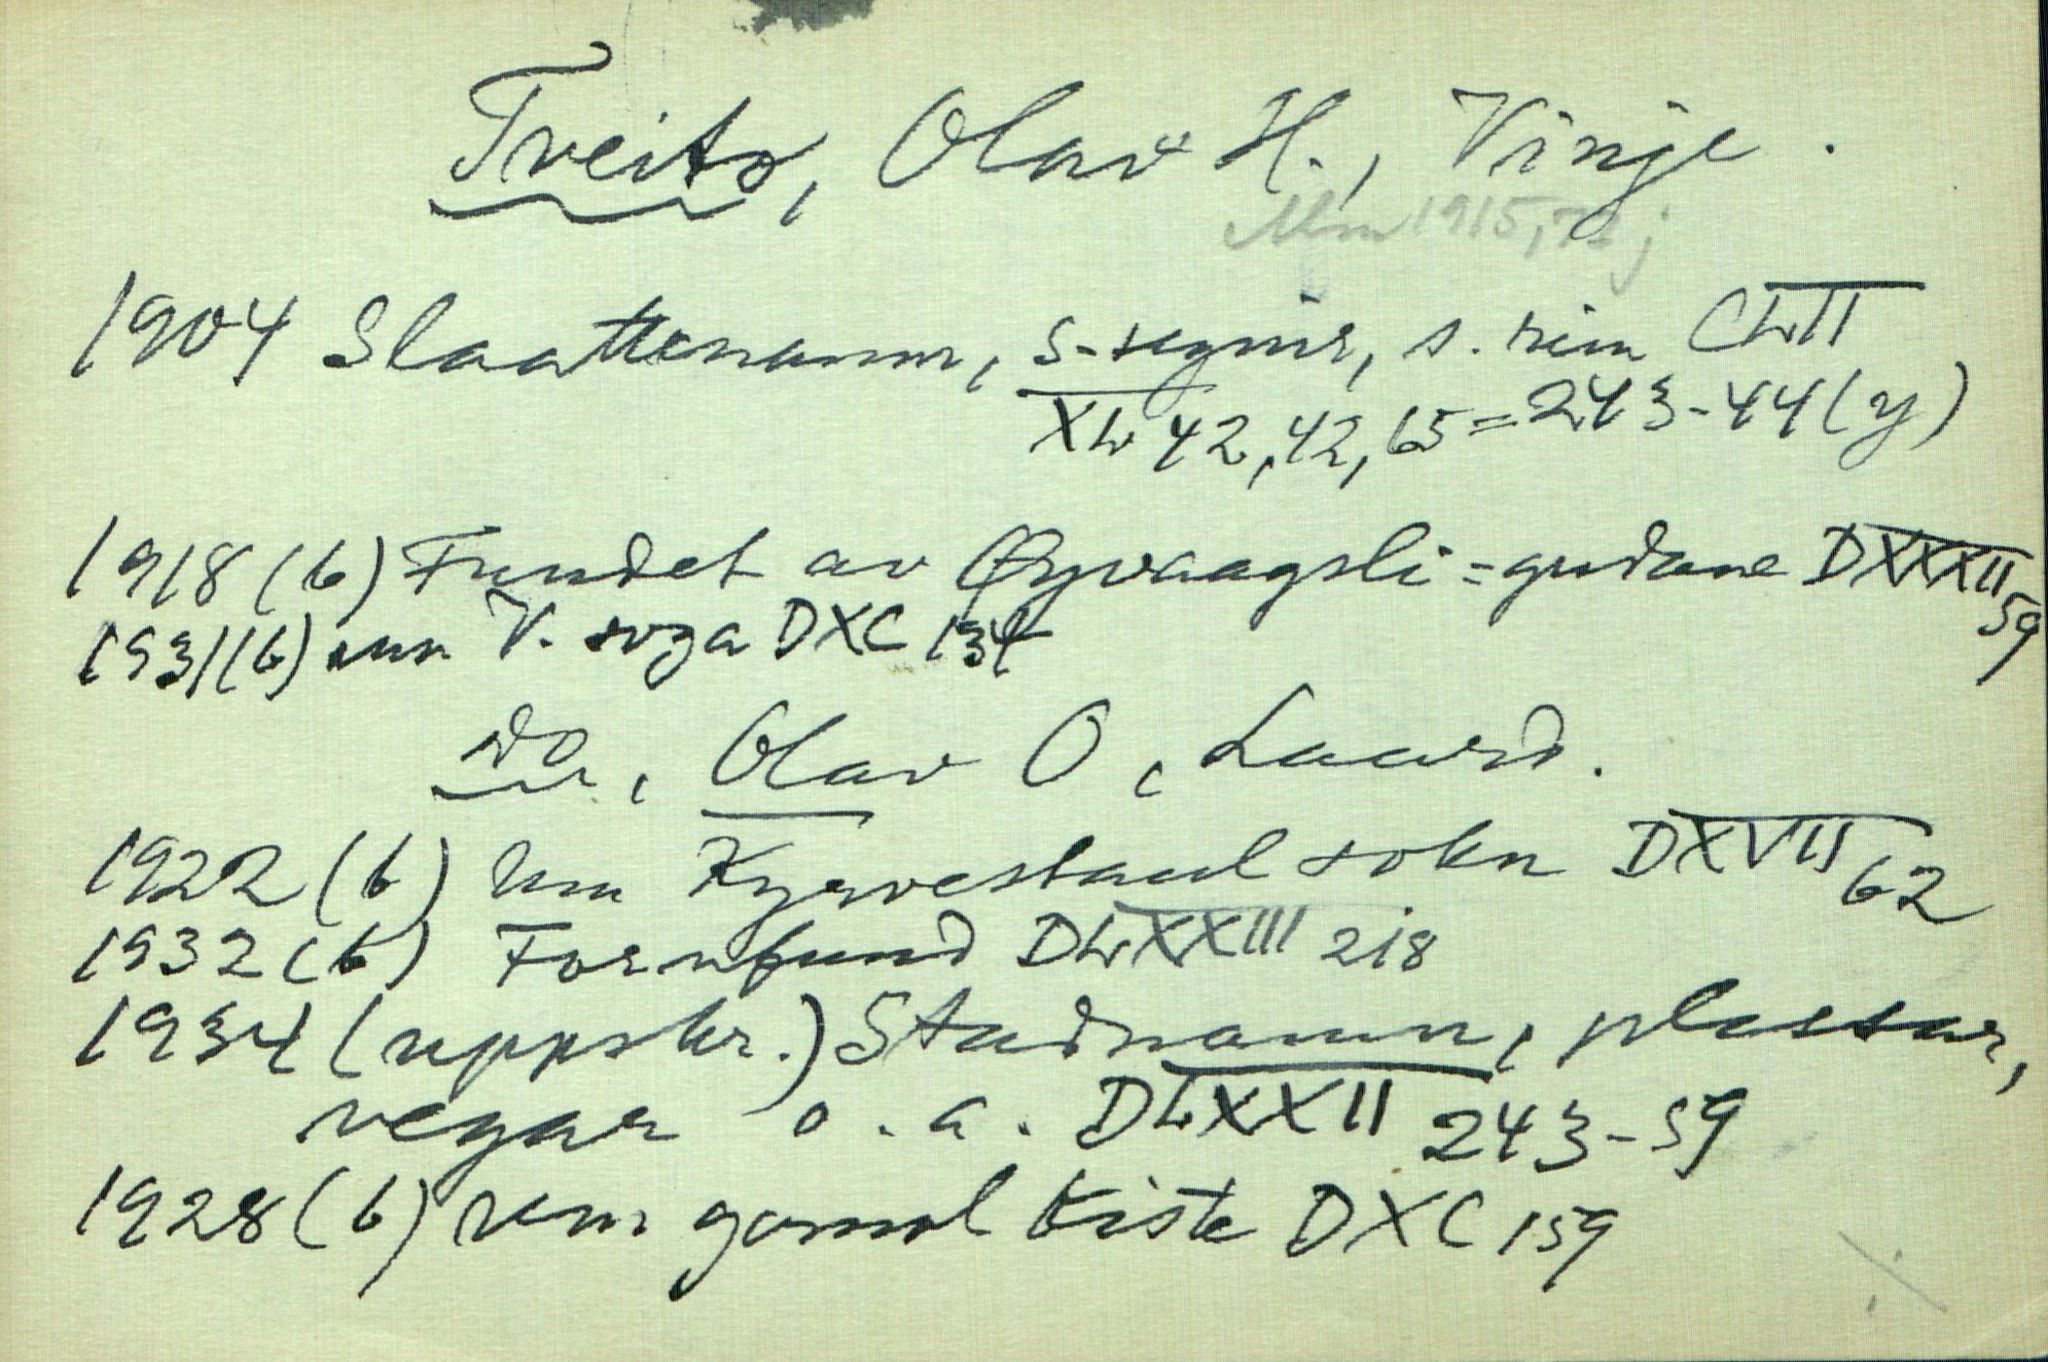 Tveito, Olav H., Vinje.
Mm 1915,
1904 Slaattenamn, s-segnir, s. rim CLII
XL 42, 42, 65 = 243-44 (y)
1918 (b) Fundet av Øyvaagsli=gudane DXXXII 59
1931 (b) um V. soga DXC 134
do, Olav O, Laard.
1922 (b) Um Kyrvestaul sokn DXVII 62
1932 (b) Fornfund DLXXIII 218
1934 (uppskr.) Stadnamn, plassar,
vegar o.a. DLXXII 243-59
1928 (b) um gamal kiste DXC 159